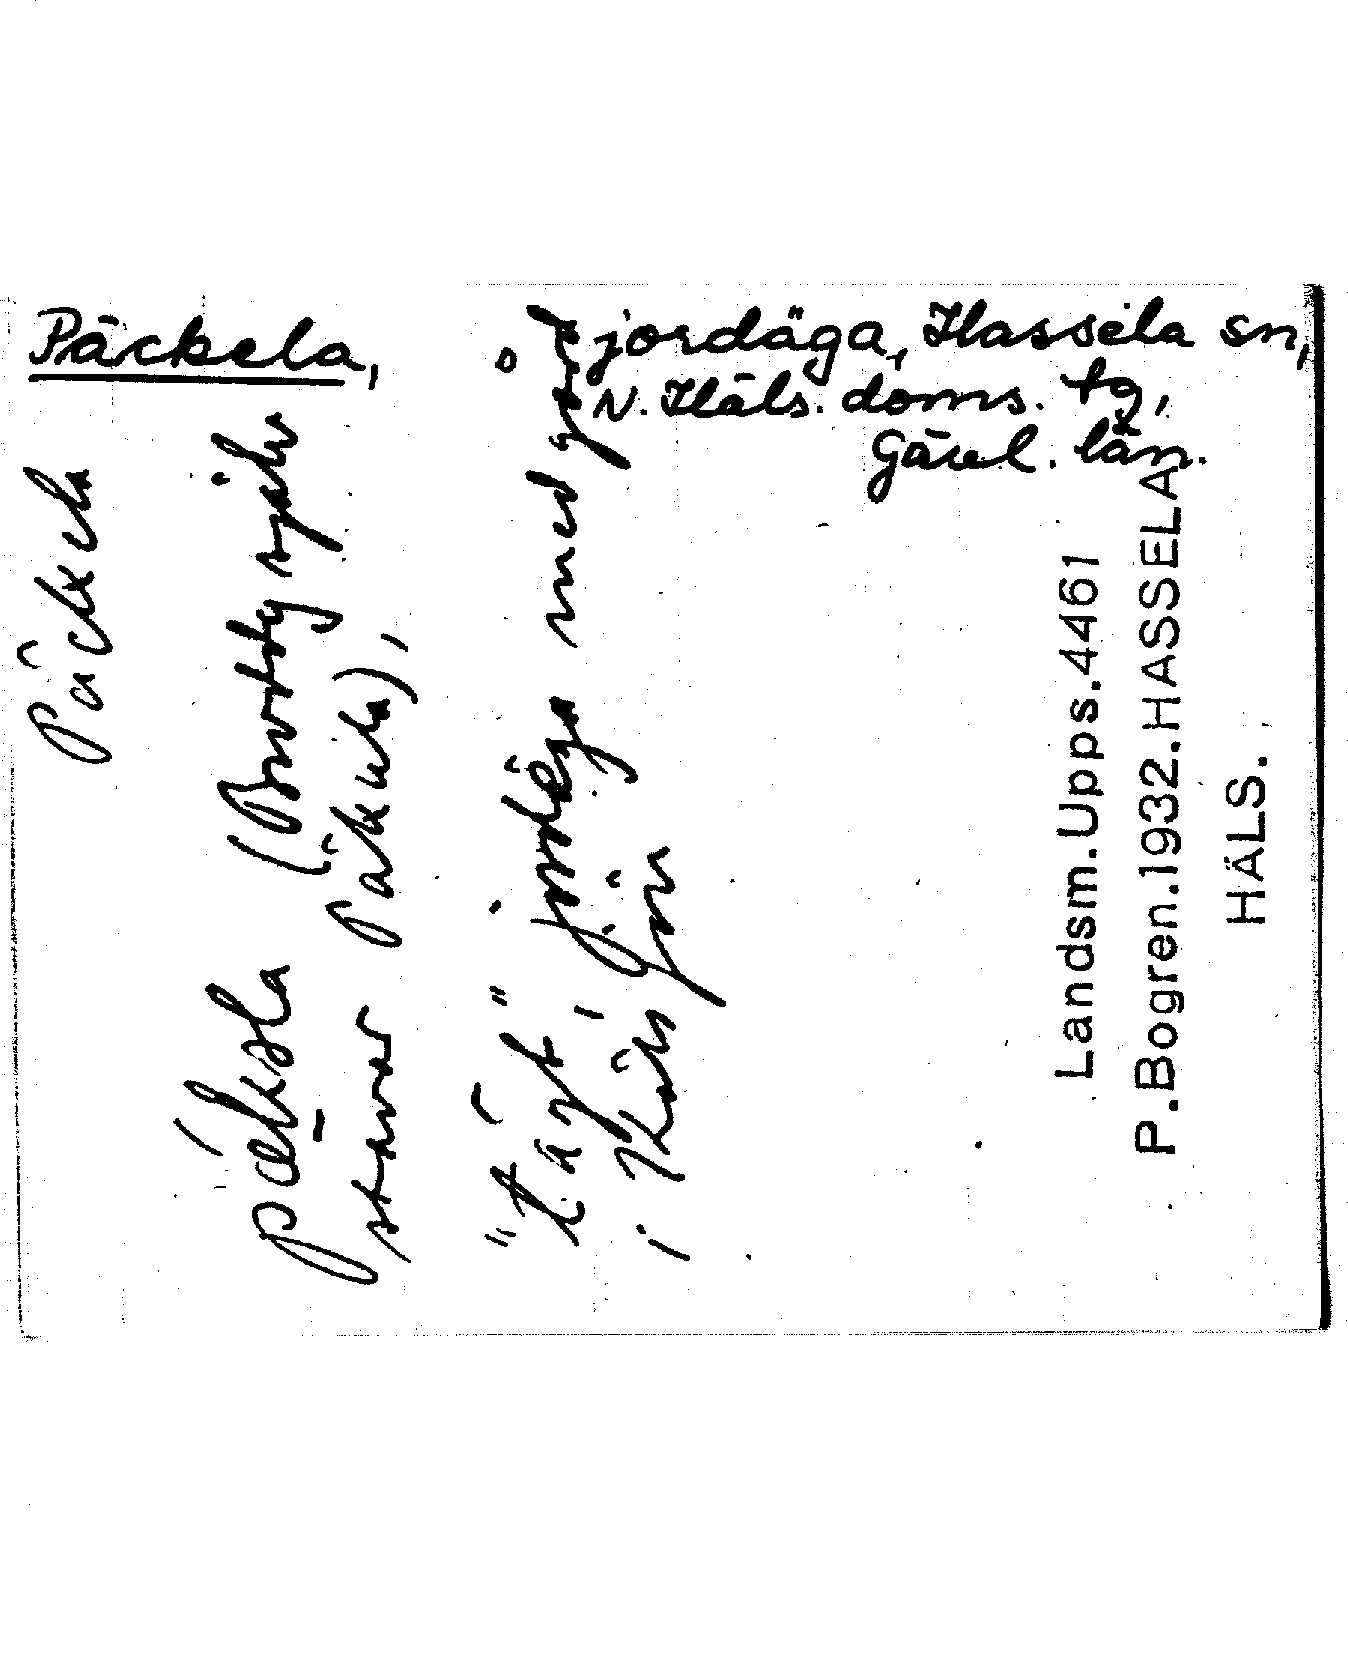 Päckela, jordäga, Hassela sn,
N. Häls. doms. tg,
Gävl. län.
Päckela
pækəla (Brodty själv
stavar Päkela),
"tägt" jordäga med gård
i
Landsm.Upps.4461
P.Bogren.1932.HASSELA
HÄLS.